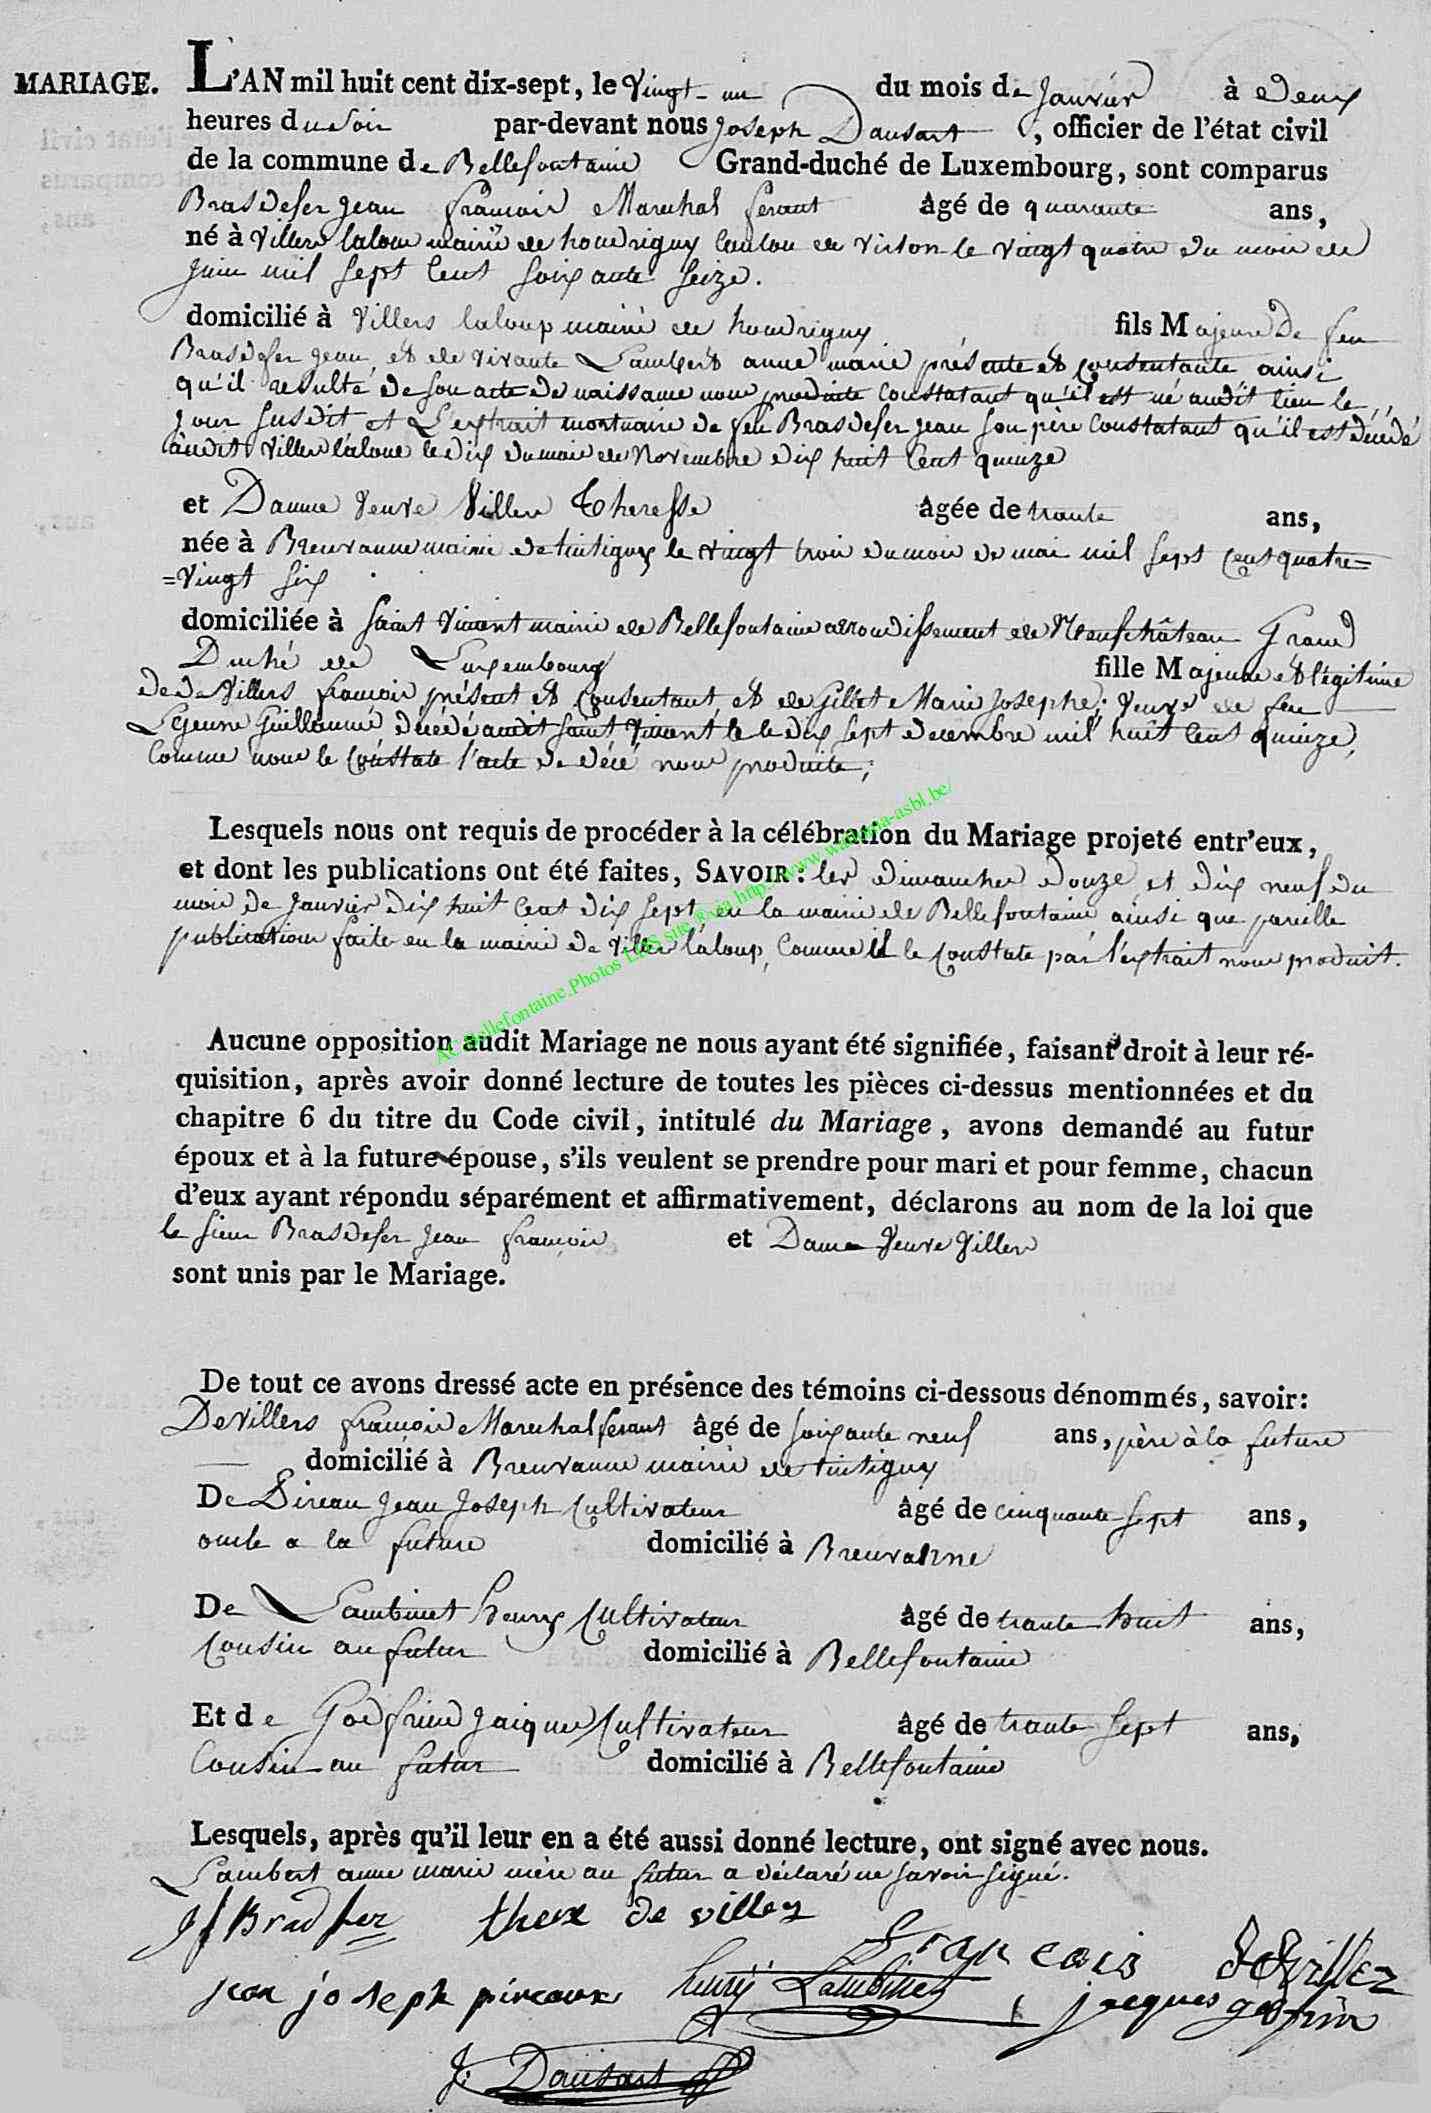 MARIAGE. L'AN mil huit cent dix-sept, le Vingt-un du mois de Janviér à deux
heures du soir par-devant nous Joseph Dausart, officier de l'état civil
de la commune de Bellefontaine Grand-duché de Luxembourg, sont comparus
Brasdefer Jean françois Marechal ferant âgé de quarante ans,
né à Villers laloue mairie de houdrigny Canton de Virton le vingt quatre du mois de
Juin mil sept Cent soixante seize.
domicilié à Villers laloup mairie de houdrigny fils Majeure De feu
Brasdefer Jean, et de vivante Lambert anne marie présente et Consentante ainsi
qu'il resulte de son acte de naissance nous produite Constatant qu'il est né audit lieu le
Jour susdit et L'extrait mortuaire de feu Brasdefer Jean son père Constatant qu'il est décédé
audit Villers laloue le dix du mois de Novembre dix huit Cent quinze
et Damme Veuve Villers Theresse âgée de trante ans,
née à Breuvanne mairie de tintigny le vingt trois du mois de mai mil sept Cent quatre=
=Vingt six
domiciliée à Saint Vincent mairie de Bellefontaine arrondissement de Neufchâteau Grand
Duché de Luxembourg fille Majeure et légitime
de De Villers françois, présent et Consentant, et de Gillet Marie Josephe; Veuve de feu
Lejeune Guillaume décédé audit Saint Vincent le dix sept decembre mil huit Cent quinze,
Comme nous le Constate l'acte de décé nous produite;
Lesquels nous ont requis de procéder à la célébration du Mariage projeté entr'eux,
et dont les publications ont été faites, SAVOIR: les dimanches douze et dix neuf du
mois de Janvier dix huit Cent dix sept en la mairie de Bellefontaine ainsi que pareille
publication faite en la mairie de Viller laloup, Comme il le Constate par l'extrait nous produit.
AC Bellefontaine.Photos LDS site & via http://www.wallonia-asbl.be/
Aucune opposition audit Mariage ne nous ayant été signifiée, faisant droit à leur ré-
quisition, après avoir donné lecture de toutes les pièces ci-dessus mentionnées et du
chapitre 6 du titre du Code civil, intitulé du Mariage, avons demandé au futur
époux et à la future épouse, s'ils veulent se prendre pour mari et pour femme, chacun
d'eux ayant répondu séparément et affirmativement, déclarons au nom de la loi que
le sieur Brasdefer Jean françois et Dame Veuve Villers
sont unis par le Mariage.
De tout ce avons dressé acte en présence des témoins ci-dessous dénommés, savoir:
De Villers françois Marechal ferant âgé de soixante neuf ans, père à la future
domicilié à Breuvanne mairie de tintigny
De Jean Joseph Cultivateur âgé de cinquante sept ans,
oncle a la future domicilié à Breuvanne
De Lambinet henry Cultivateur âgé de trante huit ans,
Cousin au futur domicilié à Bellefontaine
Et de Godfrind Jaques Cultivateur âgé de trante sept ans,
Cousin au futur domicilié à Bellefontaine
Lesquels, après qu'il leur en a été aussi donné lecture, ont signé avec nous.
Lambert anne marie mère au futur a déclaré ne savoir signé.
Jf Bradfer theresse de viller
François DeViller
jean joseph pireaux henry Lambinet jacques godfrin
J. Dausart